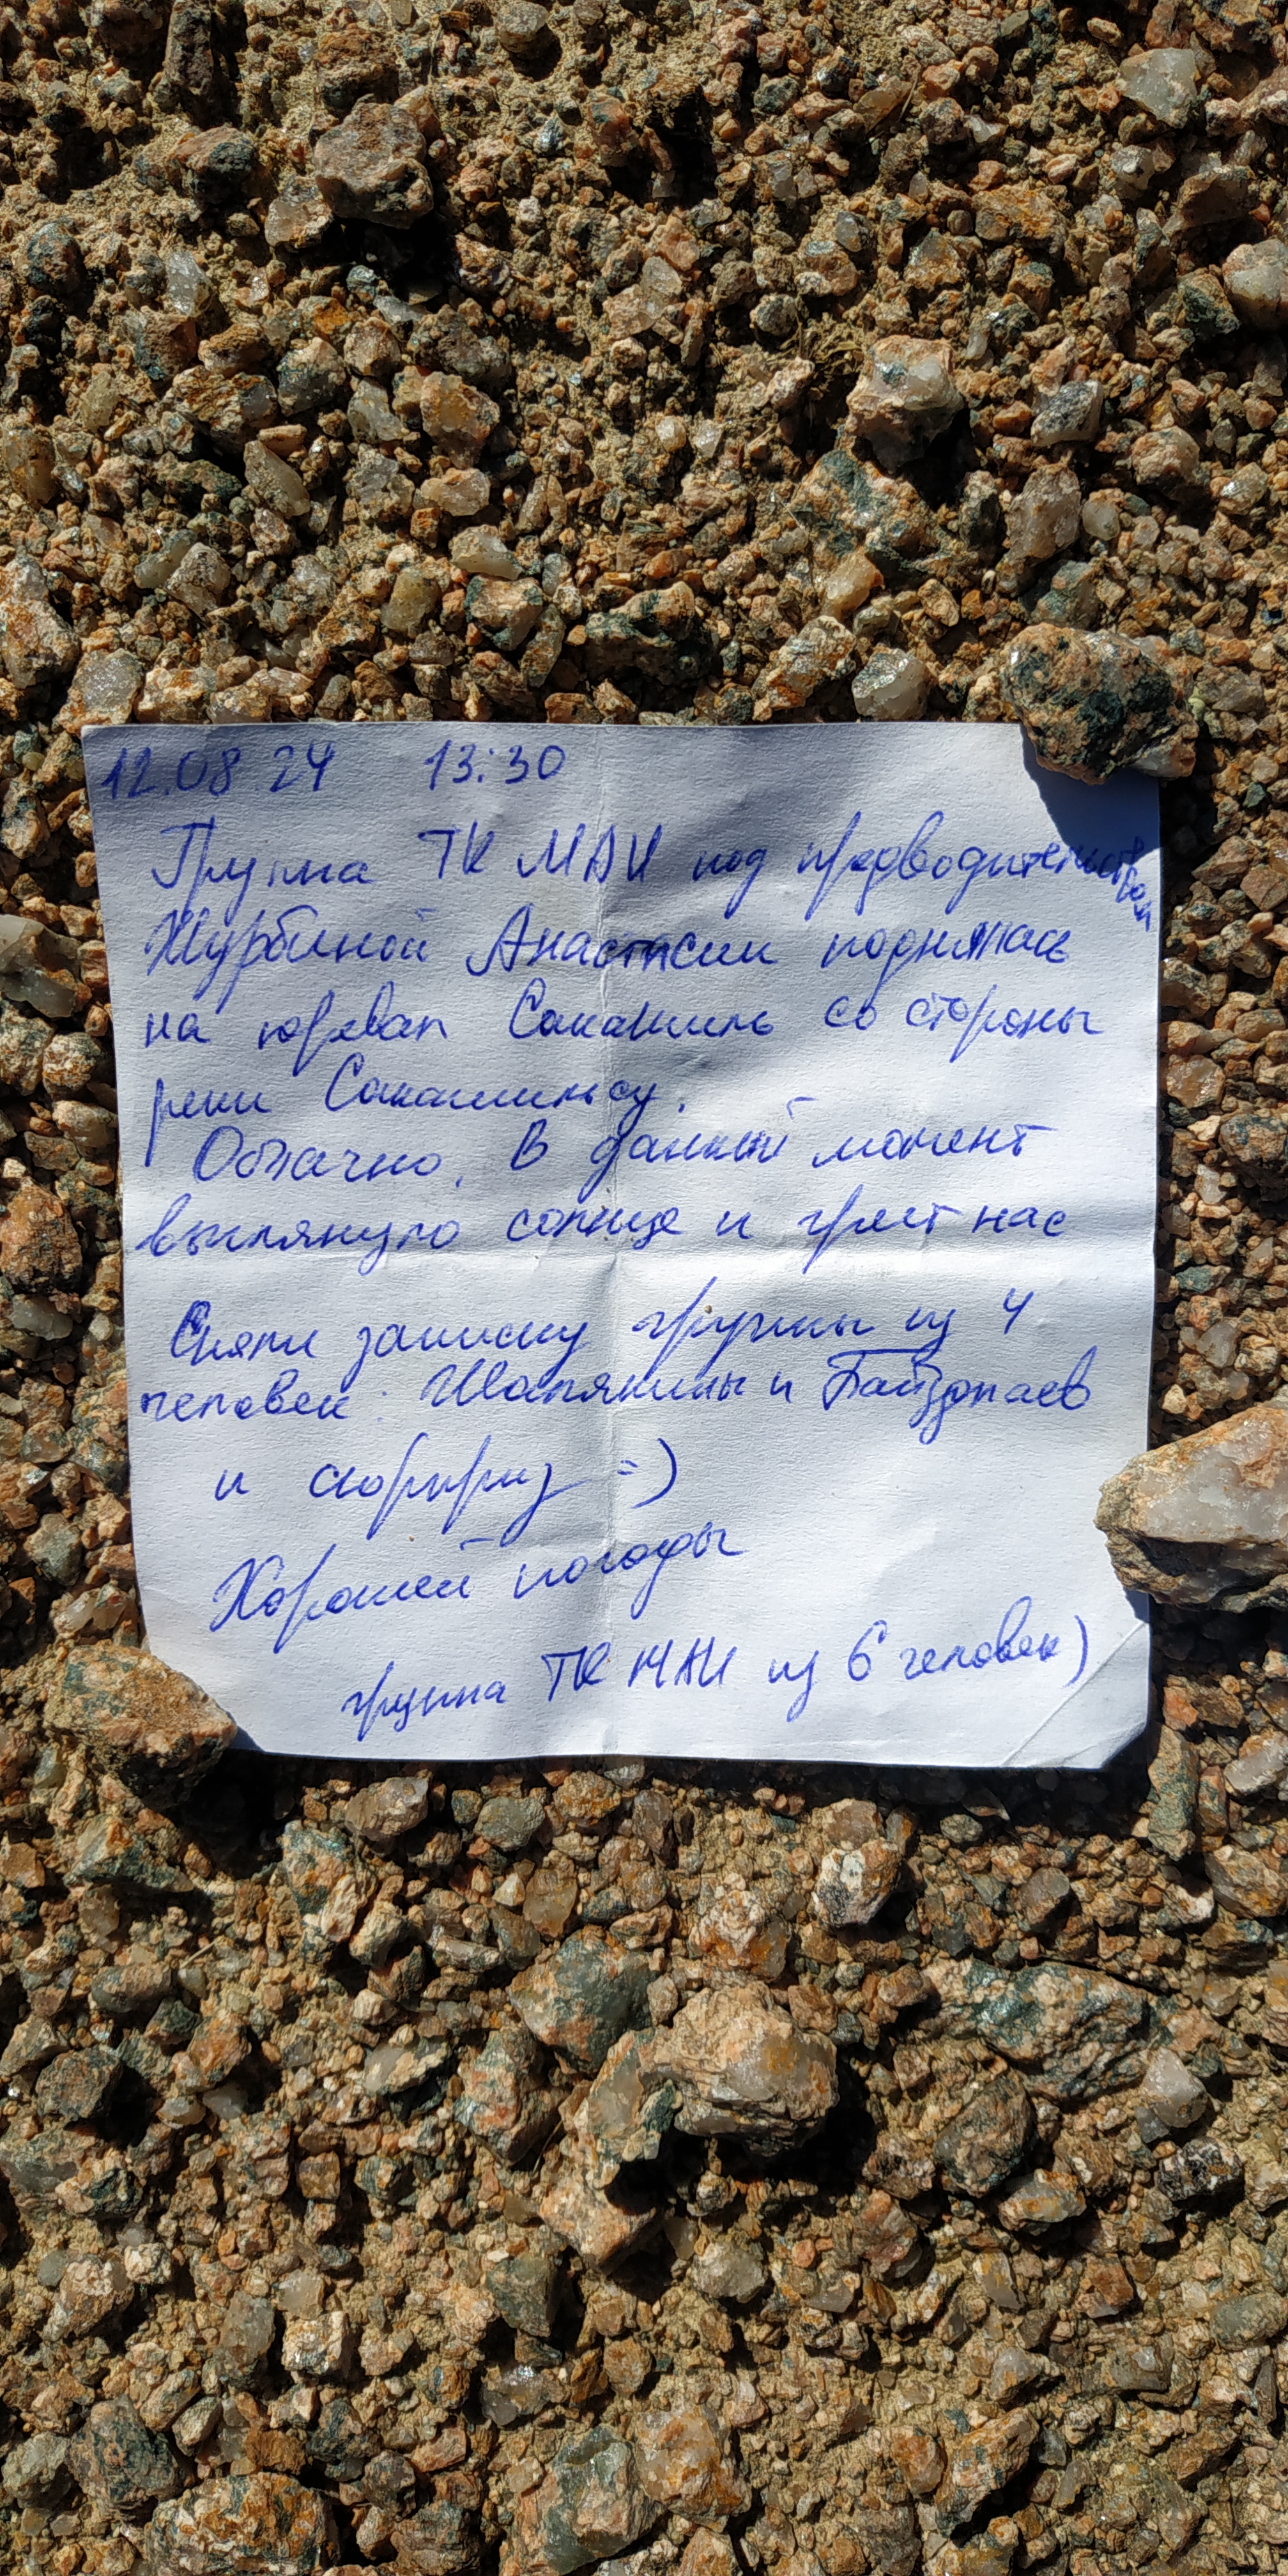 12.08.24 13:30
Группа ТК МАИ под предводительством
Журбиной Анастасии поднялась
на перевал Сакашиль со стороны
реки Сакашильсу.
Облачно. В данный момент
выглянуло солнце и греет нас
Сняли записку группы из 4
человек: Шапякины и Байздлаев
и сюрприз =)
Хорошей погоды
группа ТК МАИ из 6 человек)